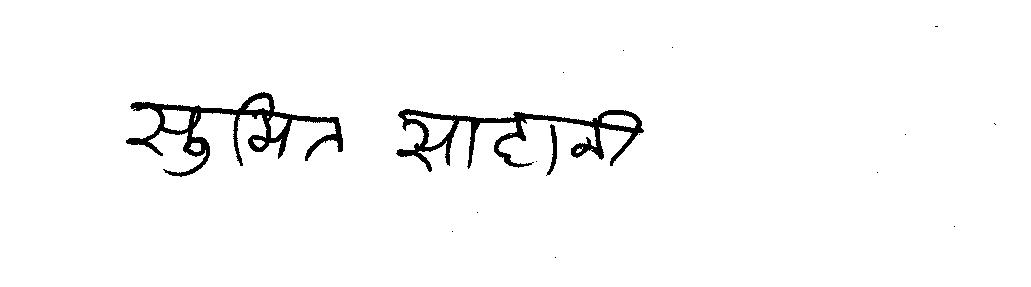 सुमित साहनी